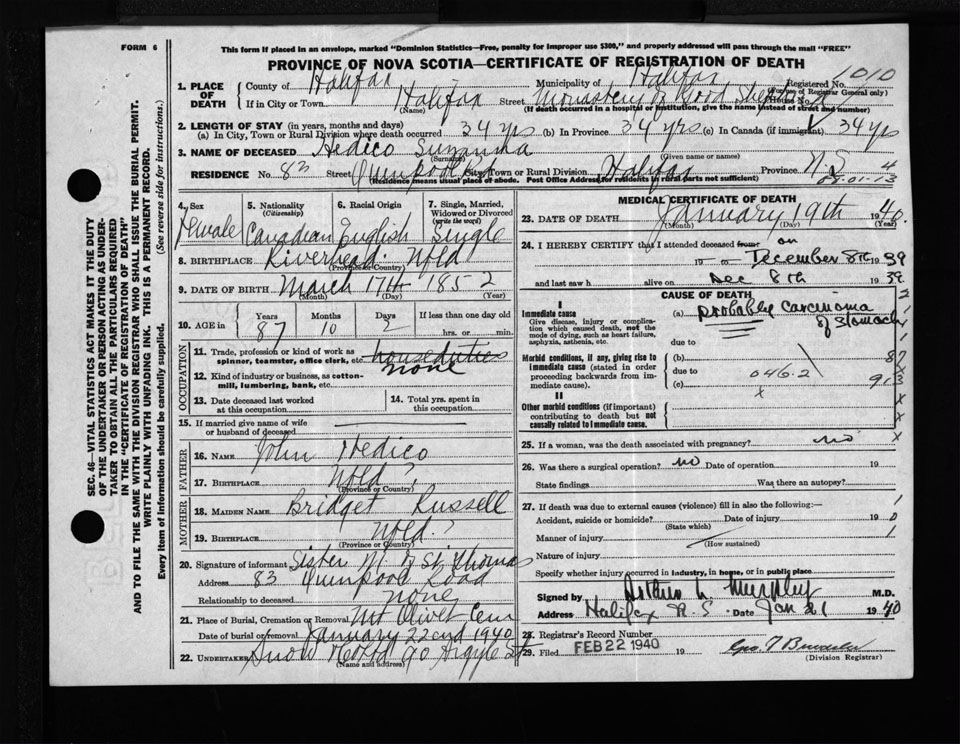 FORM 6
This form if placed in an envelope, marked "Dominion Statistics—Free, penalty for improper use $300," and properly addressed will pass through the mail "FREE"
PROVINCE OF NOVA SCOTIA—CERTIFICATE OF REGISTRATION OF DEATH
SEC. 46—VITAL STATISTICS ACT MAKES IT THE DUTY
OF THE UNDERTAKER OR PERSON ACTING AS UNDER-
TAKER TO OBTAIN ALL THE PARTICULARS REQUIRED
IN THE "CERTIFICATE OF REGISTRATION OF DEATH"
AND TO FILE THE SAME WITH THE DIVISION REGISTRAR WHO SHALL ISSUE THE BURIAL PERMIT.
WRITE PLAINLY WITH UNFADING INK. THIS IS A PERMANENT RECORD.
Every item of Information should be carefully supplied. (See reverse side for instructions.)
1. PLACE OF DEATH
County of Halifax Municipality of Halifax Registered No. 1010
(For use of Registrar General only)
If in City or Town Halifax Street Monastery of Good House No.
(Name) (If death occurred in a hospital or institution, give the name instead of street and number)
2. LENGTH OF STAY (in years, months and days)
(a) In City, Town or Rural Division where death occurred 34 yrs (b) In Province 34 yrs (c) In Canada (if immigrant) 34 yrs
3. NAME OF DECEASED Hedico Suzanna
(Surname) (Given name or names)
RESIDENCE No. 83 Street Quinpool Rd City, Town or Rural Division Halifax Province N.S. 4
(Residence means usual place of abode. Post Office Address for residents in rural parts not sufficient)
4. Sex Female
5. Nationality (Citizenship) Canadian
6. Racial Origin English
7. Single, Married, Widowed or Divorced (write the word) Single
8. BIRTHPLACE Riverhead. Nfld
(Province or Country)
9. DATE OF BIRTH March 17th 1852
(Month) (Day) (Year)
10. AGE in Years 87 Months 10 Days 2 If less than one day
hrs. or min.
OCCUPATION
11. Trade, profession or kind of work as spinner, teamster, office clerk, etc. house duties
12. Kind of industry or business, as cotton-mill, lumbering, bank, etc. none
13. Date deceased last worked at this occupation
14. Total yrs. spent in this occupation
15. If married give name of wife or husband of deceased
FATHER
16. NAME John Hedico
17. BIRTHPLACE Nfld ?
(Province or Country)
MOTHER
18. MAIDEN NAME Bridget Russell
19. BIRTHPLACE Nfld ?
(Province or Country)
20. Signature of informant Sister M of St Thomas
Address 83 Quinpool Road
Relationship to deceased none
21. Place of Burial, Cremation or Removal Mt Olivet Cem
Date of burial or removal January 22nd 1940
22. UNDERTAKER Snow & Co Ltd 90 Argyle St
(Name and address)
MEDICAL CERTIFICATE OF DEATH
23. DATE OF DEATH January 19th 1940
(Month) (Day) (Year)
24. I HEREBY CERTIFY that I attended deceased from: on
19 to December 8th 1939
and last saw h alive on Dec 8th 1939
CAUSE OF DEATH
I
Immediate cause
Give disease, injury or complication which caused death, not the mode of dying, such as heart failure, asphyxia, asthenia, etc.
(a) probably carcinoma of stomach
due to
Morbid conditions, if any, giving rise to immediate cause (stated in order proceeding backwards from immediate cause).
(b)
due to 046.2
(c)
87
913
II
Other morbid conditions (if important) contributing to death but not causally related to immediate cause.
25. If a woman, was the death associated with pregnancy? no
26. Was there a surgical operation? no Date of operation 19
State findings Was there an autopsy?
27. If death was due to external causes (violence) fill in also the following:—
Accident, suicide or homicide? Date of injury 19
(State which)
Manner of injury
(How sustained)
Nature of injury
Specify whether injury occurred in industry, in home, or in public place
Signed by Murphy M.D.
Address Halifax N.S. Date Jan 21 1940
28. Registrar's Record Number
29. Filed FEB 22 1940 19
(Division Registrar)